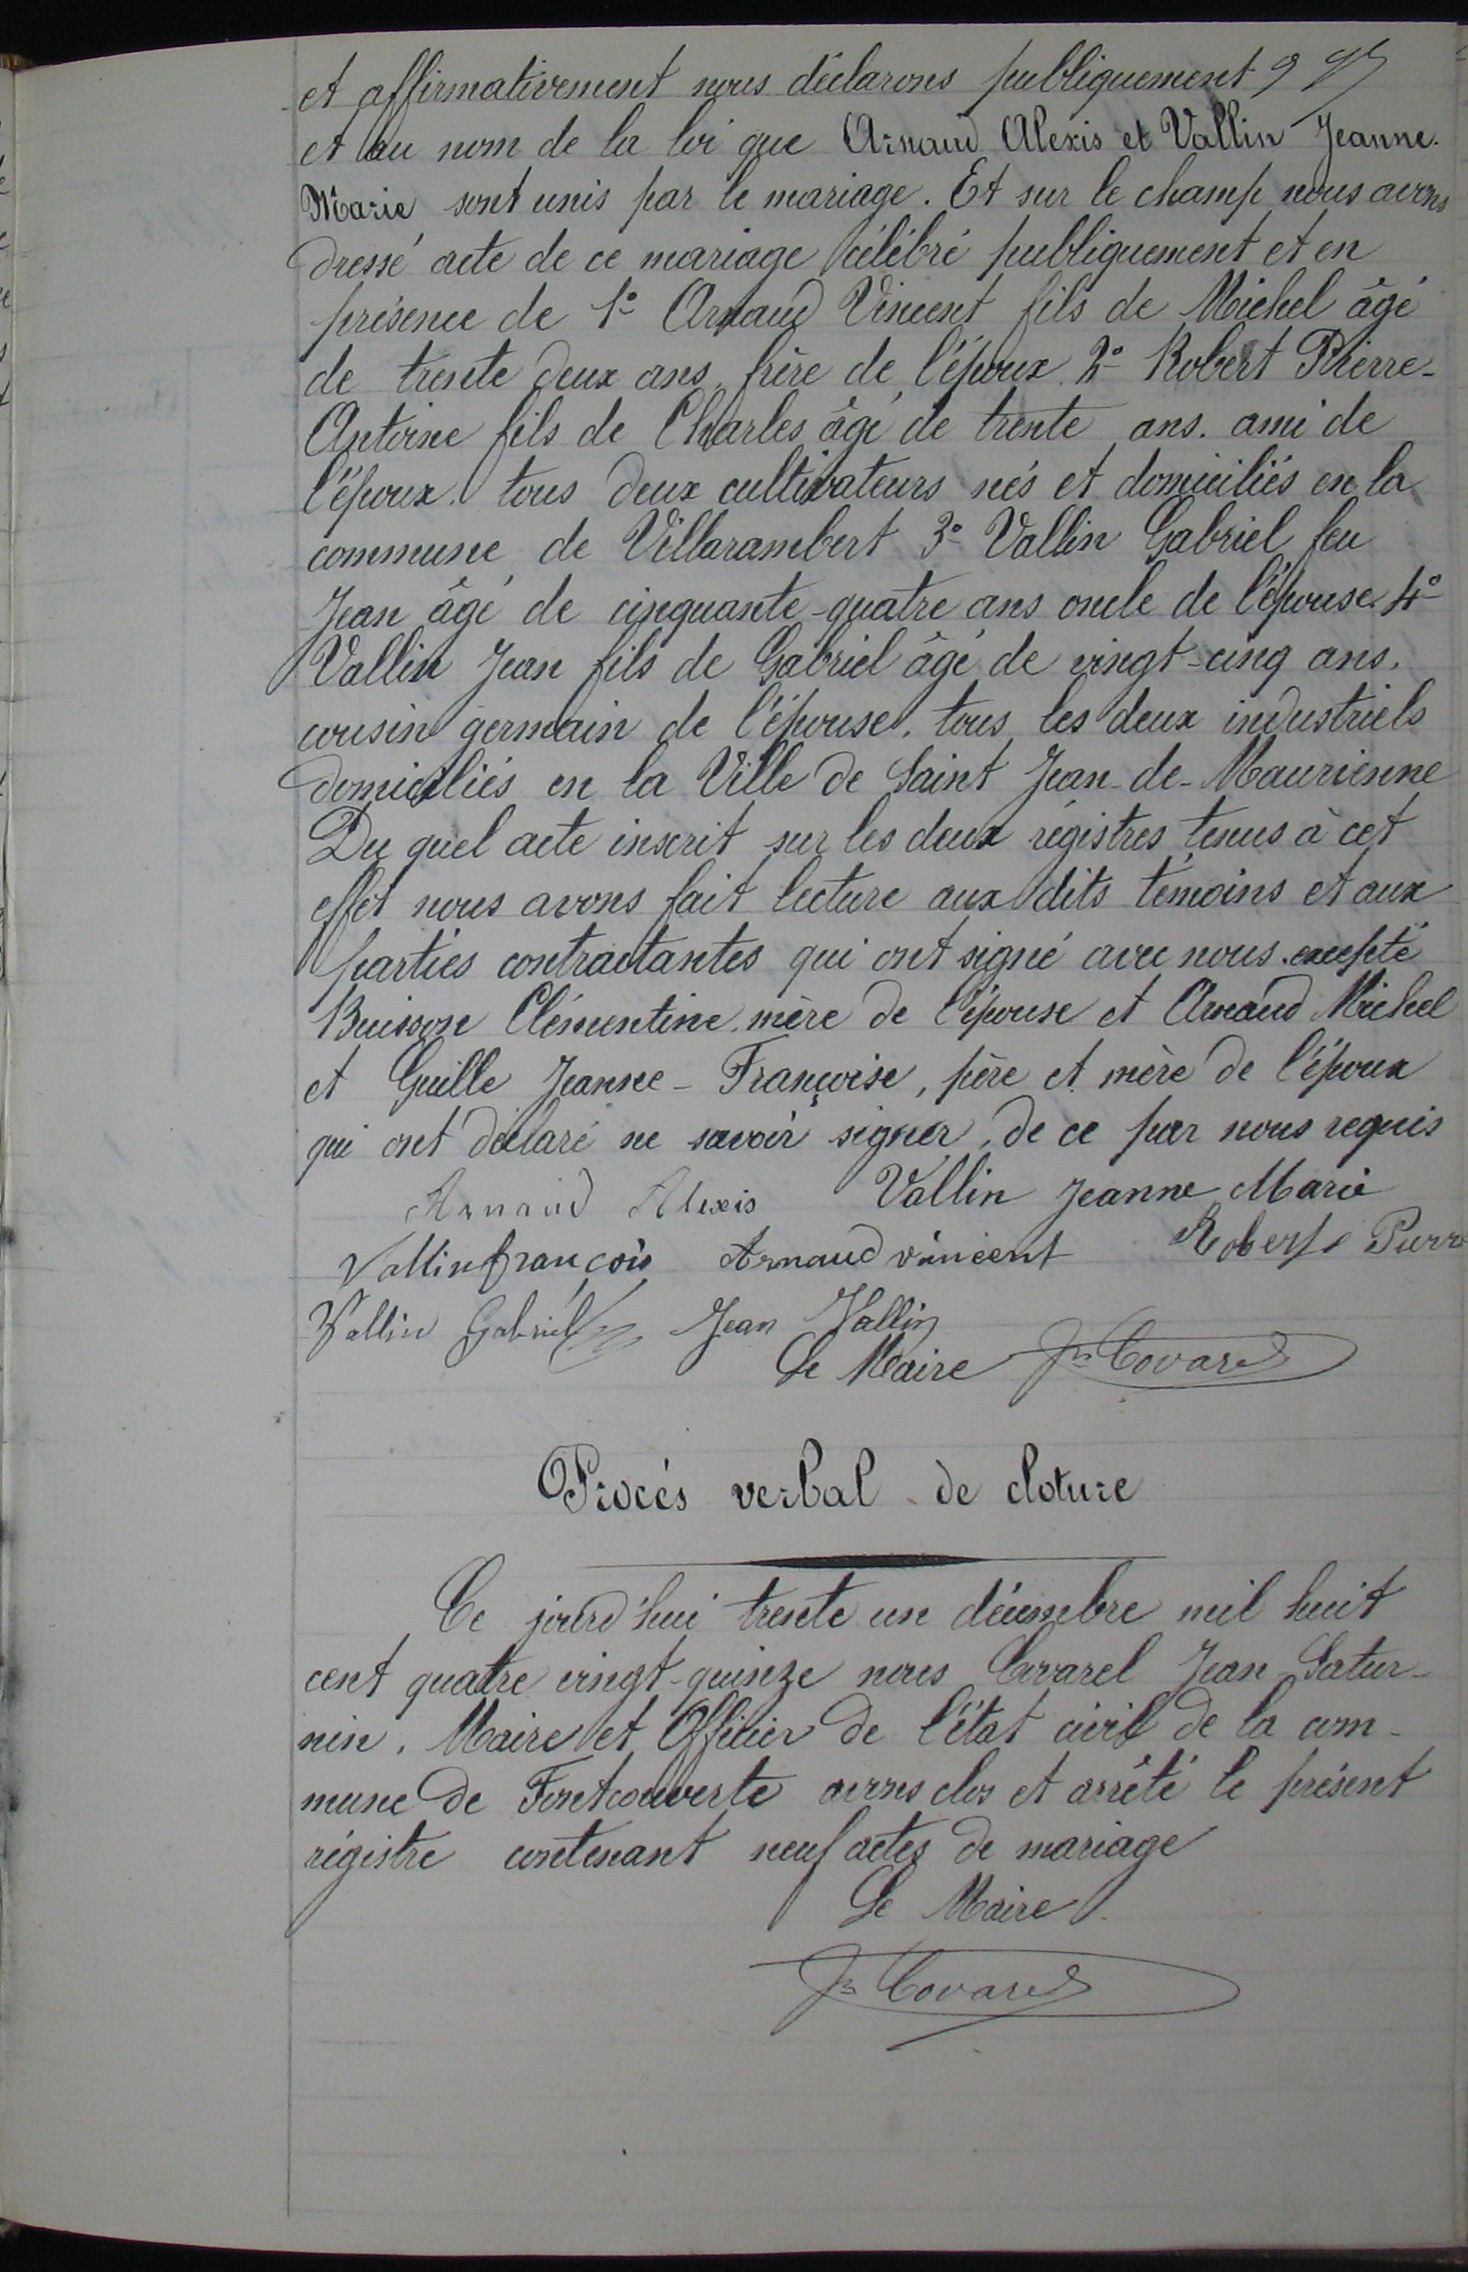 et affirmativement nous déclarons publiquement 9
et au nom de la loi que Arnaud Alexis et Vallin Jeanne-
Marie sont unis par le mariage. Et sur le champ nous avons
dressé acte de ce mariage célébré publiquement et en
présence de 1° Arnaud Vincent fils de Michel âgé
de trente deux ans, frère de l'époux 2° Robert Pierre-
Antoine fils de Charles âgé de trente ans. ami de
l'époux. tous deux cultivateurs nés et domiciliés en la
commune de Villarambert 3° Vallin Gabriel feu
Jean âgé de cinquante-quatre ans oncle de l'épouse. 4°
Vallin Jean fils de Gabriel âgé de vingt-cinq ans.
cousin germain de l'épouse. tous les deux industriels
domiciliés en la Ville de Saint Jean-de-Maurienne
Du quel acte inscrit sur les deux régistres tenus à cet
effet nous avons fait lecture aux dits témoins et aux
parties contractantes qui ont signé avec nous. excepté
Buisson Clémentine mère de l'épouse et Arnaud Michel
et Guille Jeanne-Françoise, père et mère de l'époux
qui ont déclaré ne savoir signer, de ce par nous requis
Arnaud Alexis Vallin Jeanne Marie
Vallin françois Arnaud vincent Robert Pierre
Vallin Gabriel Jean Vallin
Le Maire Jn Covarel
Procés verbal de cloture
Ce jourd'hui trente un décembre mil huit
cent quatre vingt-quinze nous Covarel Jean Satur-
nin. Maire et Officier de l'état civil de la com-
mune de Fontcouverte avons clos et arrêté le présent
régistre contenant neuf actes de mariage
Le Maire
Jn Covarel